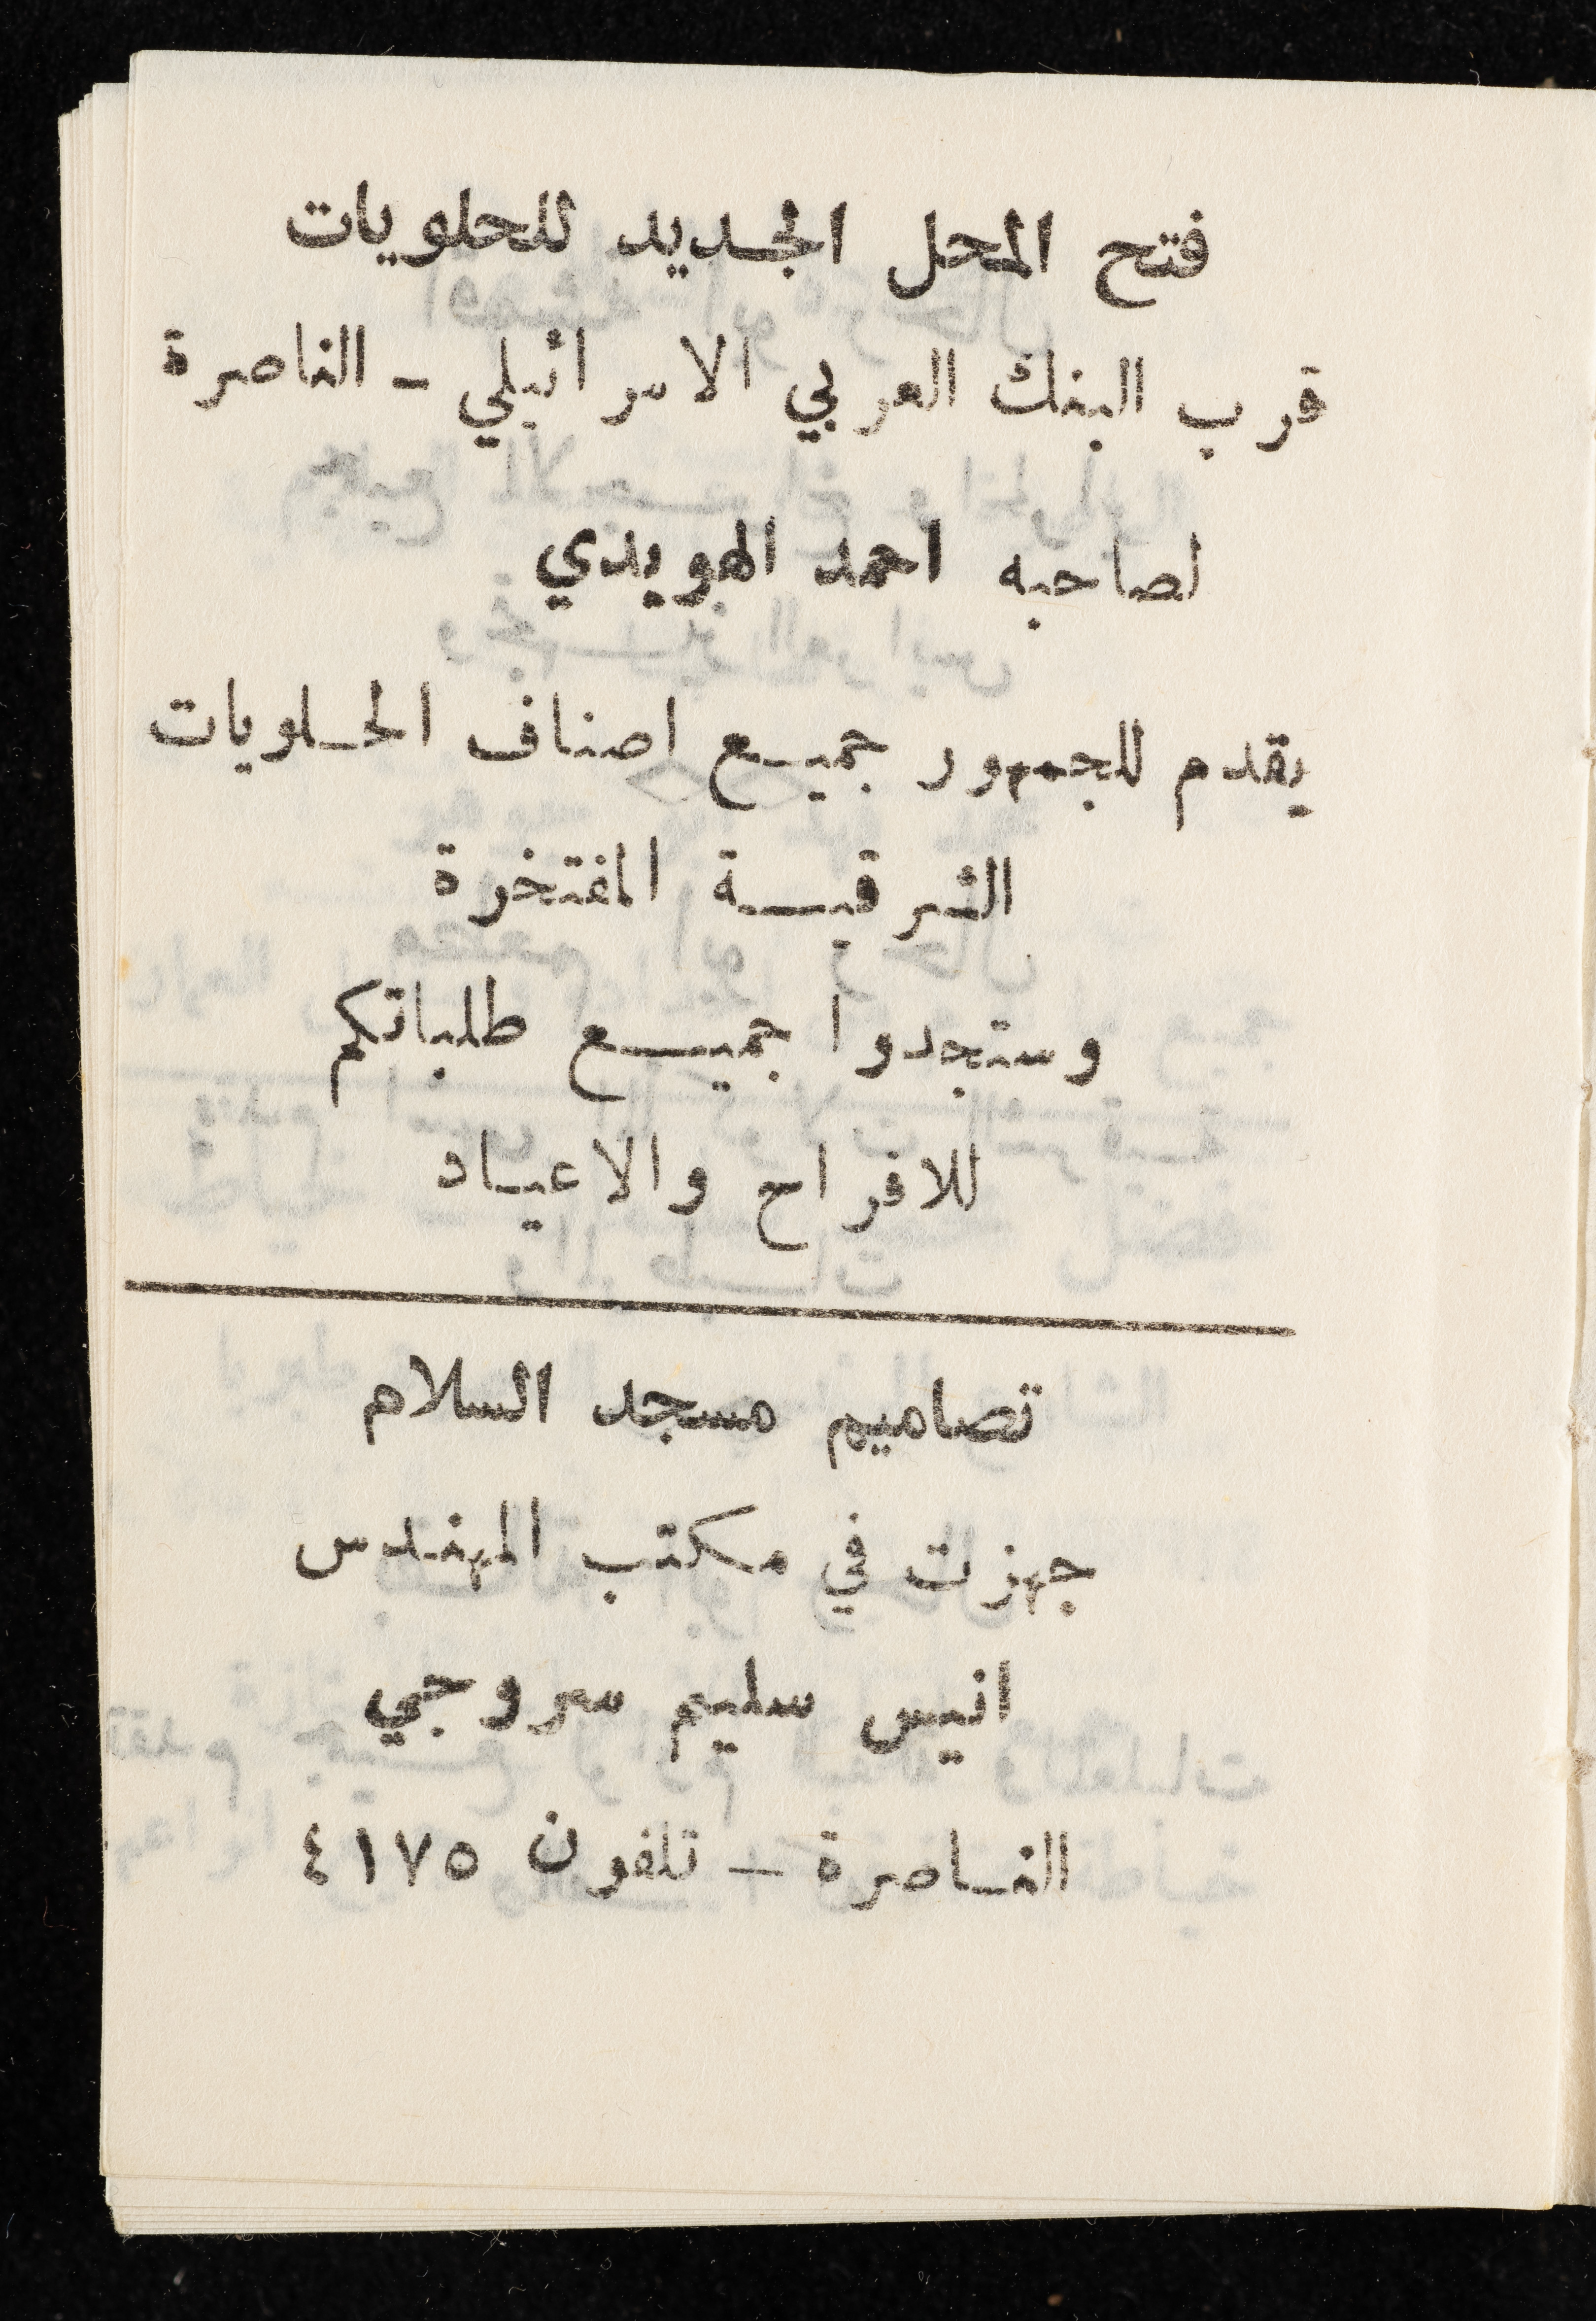 فتح المحل الجديد للحلويات
قرب البنك العربي الاسرائيلي - الناصرة
لصاحبه احمد الهويدي
يقدم للجمهور جميع اصناف الحلويات
الشرقية المفتخرة
وستجدوا جميع طلباتكم
للافراح والاعياد
تصاميم مسجد السلام
جهزت في مكتب المهندس
انيس سليم سروجي
الناصرة - تلفون ٤١٧٥